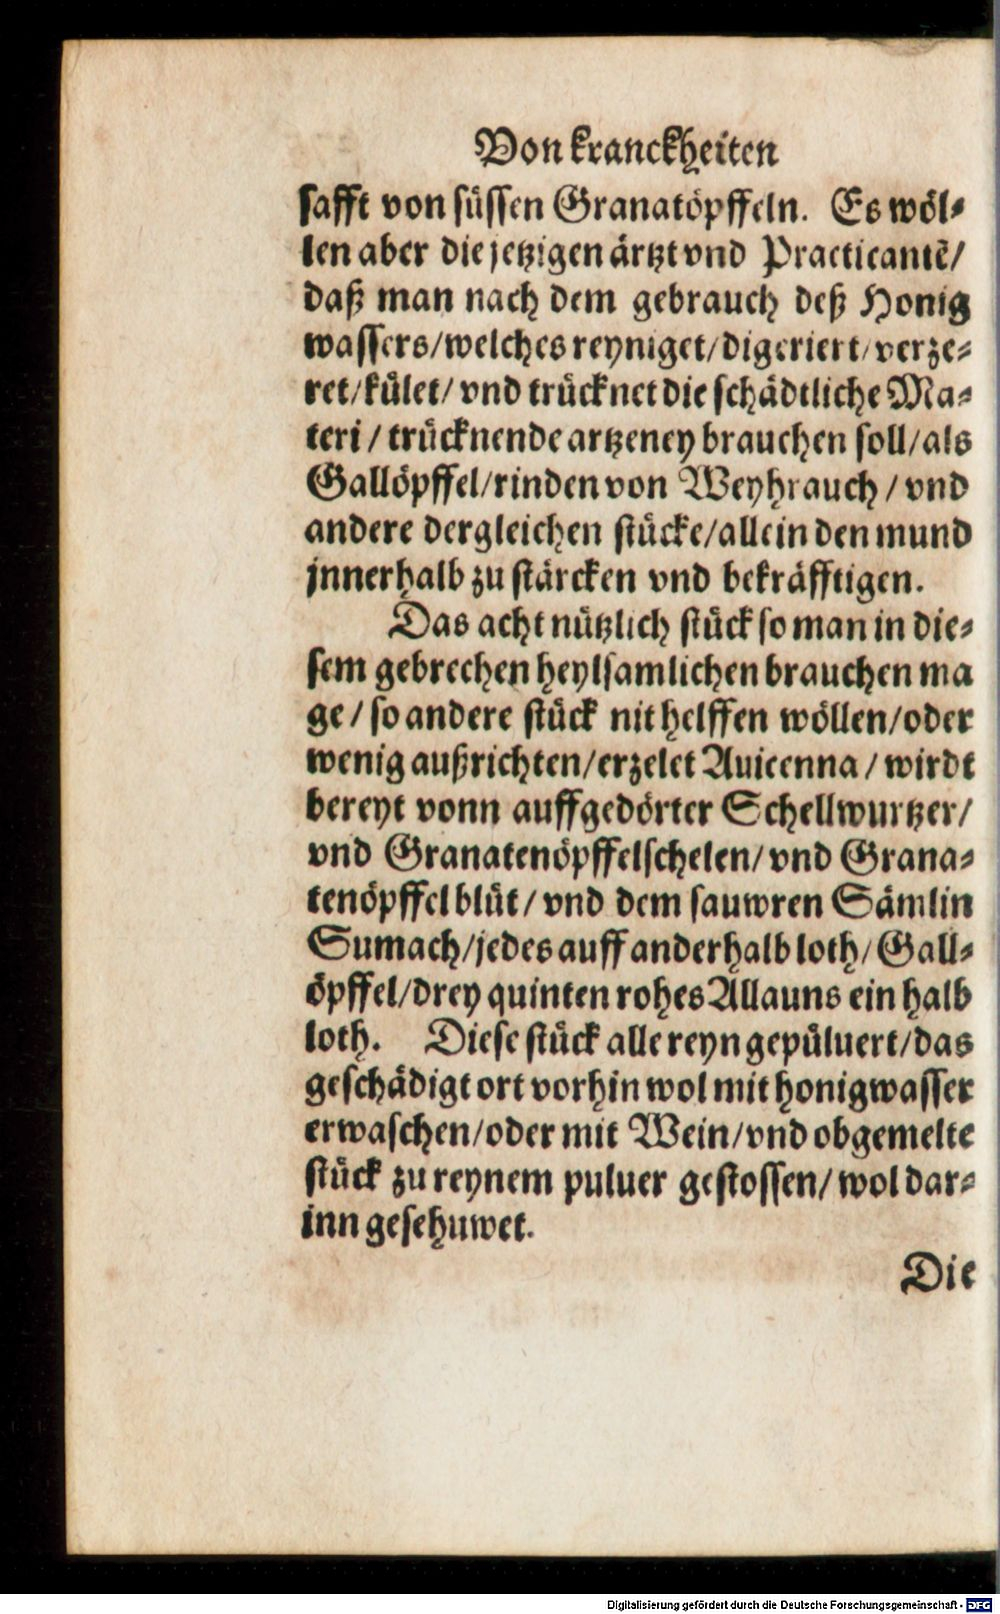 Von kranckheiten
safft von süssen Granatöpffeln. Es wöl⸗
len aber die jetzigen ärtzt vnd Practicantẽ/
daß man nach dem gebrauch deß Honig
wassers/welches reyniget/digeriert/verze⸗
ret/kület/ vnd trücknet die schädtliche Ma⸗
teri / trücknende artzeney brauchen soll/als
Gallöpffel/rinden von Weyhrauch / vnd
andere dergleichen stücke/allein den mund
jnnerhalb zu stärcken vnd bekräfftigen.
Das acht nützlich stück so man in die⸗
sem gebrechen heylsamlichen brauchen ma
ge / so andere stück nit helffen wöllen/oder
wenig außrichten/erzelet Auicenna / wirdt
bereyt vonn auffgedörter Schellwurtzer/
vnd Granatenöpffelschelen/ vnd Grana⸗
tenöpffelblüt / vnd dem sauwren Sämlin
Sumach/jedes auff anderhalb loth/ Gall⸗
öpffel/drey quinten rohes Allauns ein halb
loth. Diese stück alle reyn gepüluert/das
geschädigt ort vorhin wol mit honigwasser
erwaschen/oder mit Wein/vnd obgemelte
stück zu reynem puluer gestossen/ wol dar⸗
inn gesehuwet.
Die
Digitalisierung gefördert durch die Deutsche Forschungsgemeinschaft - DFG